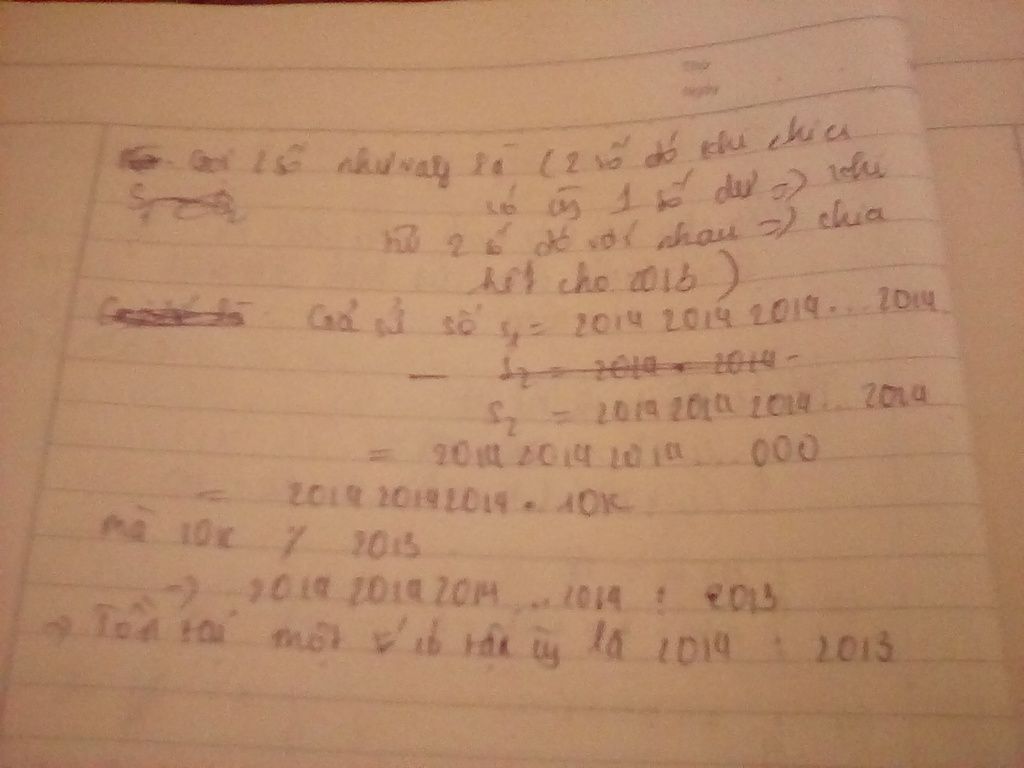 2 số như vậy là (2 số đó khi chia
có cùng 1 số dư => khi
trừ 2 số đó với nhau => chia
hết cho 2013)
Giả sử số S1 = 2014 2014 2014... 2014
- S2 = 2014 . 2014
S2 = 2014 2014 2014.. 2014
= 2014 2014 2014... 000
= 2014 2014 2014 . 10k
mà 10k 2013
=> 2014 2014 2014...2014 : 2013
=> Tồn tại một số có tận cùng là 2014 : 2013